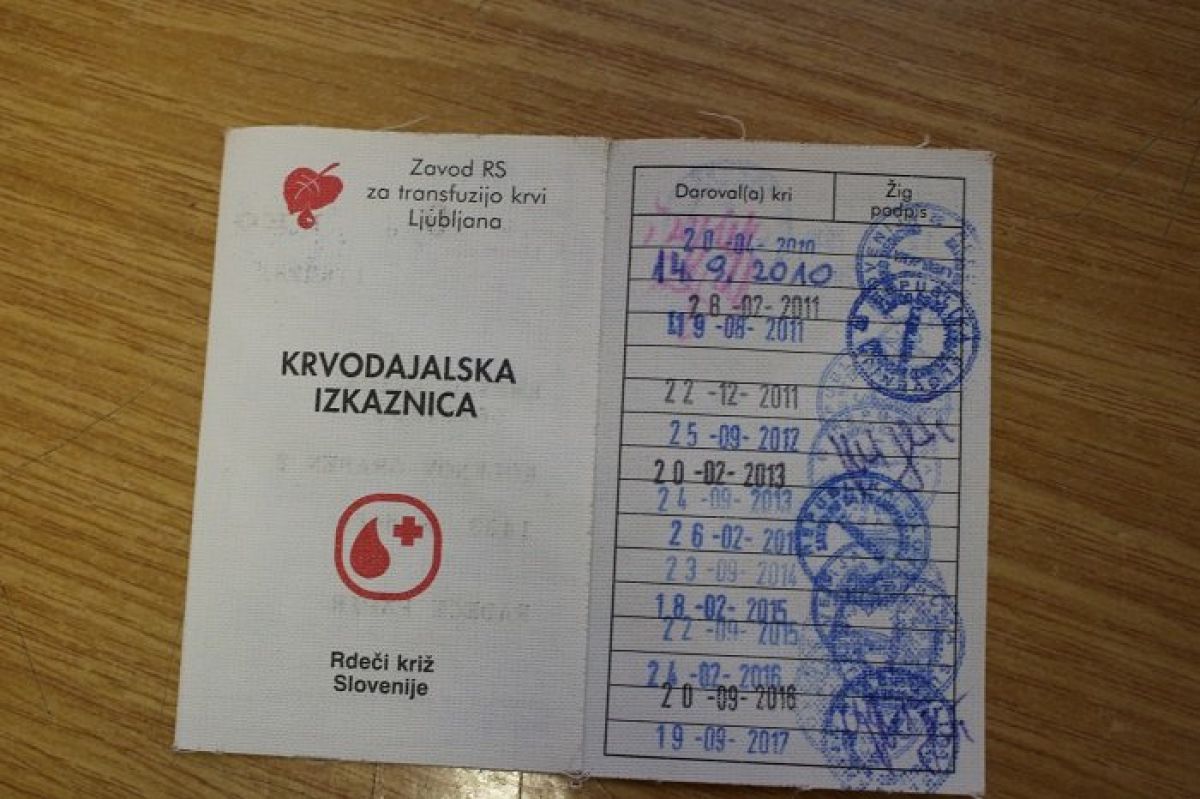 Zavod RS
za transfuzijo krvi
Ljubljana
KRVODAJALSKA
IZKAZNICA
Rdeči križ
Slovenije
Daroval(a) kri
Žig
podpis
20 -04- 2010
14. 9. 2010
28 -02- 2011
19 -08- 2011
22 -12- 2011
25 -09- 2012
20 -02- 2013
24 -09- 2013
26 -02- 201
23 -09- 2014
18 -02- 2015
22 -09- 2015
24 -02- 2016
20 -09- 2016
19 -09- 2017